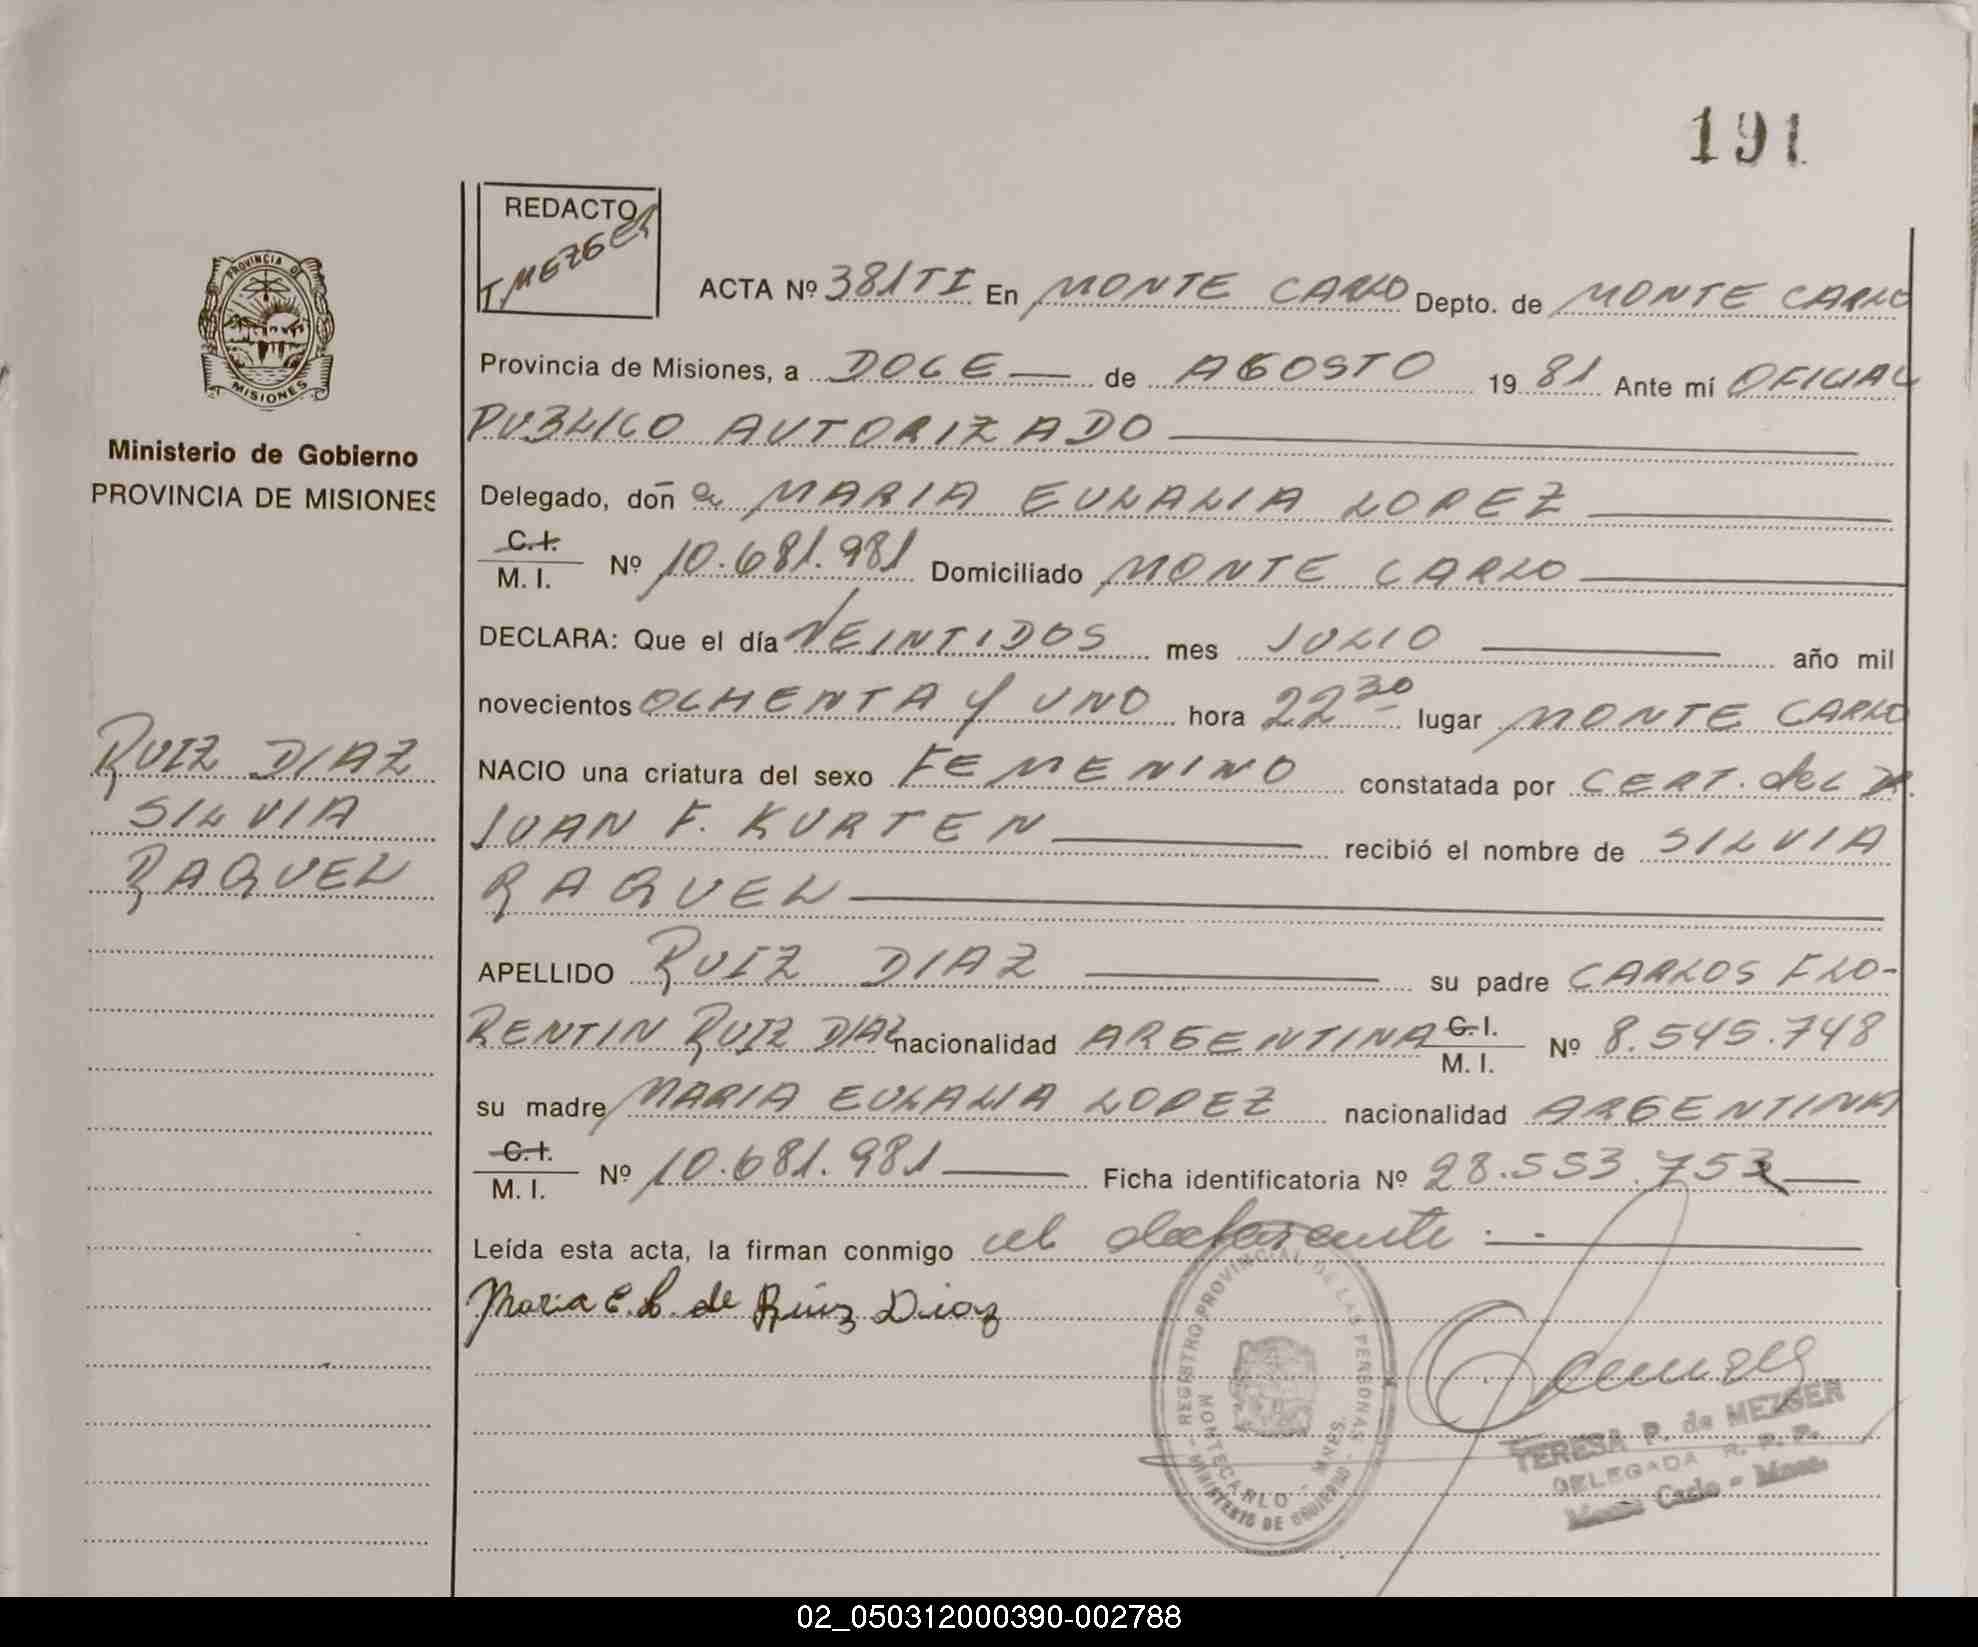 191
REDACTO
T. MEZGER
ACTA Nº 381 TI En MONTE CARLO Depto. de MONTE CARLO
Provincia de Misiones, a DOCE de AGOSTO 1981 Ante mí OFICIAL
PUBLICO AUTORIZADO
Delegado, don a MARIA EULALIA LOPEZ
C.I.
M. I. Nº 10.681.981 Domiciliado MONTE CARLO
DECLARA: Que el día VEINTIDOS mes JULIO año mil
novecientos OCHENTA Y UNO hora 22 30 lugar MONTE CARLO
NACIO una criatura del sexo FEMENINO constatada por CERT. del DR.
JUAN F. KURTEN recibió el nombre de SILVIA
RAQUEL
APELLIDO RUIZ DIAZ su padre CARLOS FLO-
RENTIN RUIZ DIAZ nacionalidad ARGENTINA C.I. M. I. Nº 8.545.748
su madre MARIA EULALIA LOPEZ nacionalidad ARGENTINA
C.I.
M. I. Nº 10.681.981 Ficha identificatoria Nº 28.553.753
Leída esta acta, la firman conmigo el declarante . -
Maria E. L. de Ruiz Diaz
PROVINCIA DE
MISIONES
Ministerio de Gobierno
PROVINCIA DE MISIONES
RUIZ DIAZ
SILVIA
RAQUEL
REGISTRO PROVINCIAL DE LAS PERSONAS
MONTECARLO - MNES.
- MINISTERIO DE GOBIERNO -
TERESA P. de MEZGER
DELEGADA R. P. P.
Monte Carlo - Mnes.
02_050312000390-002788